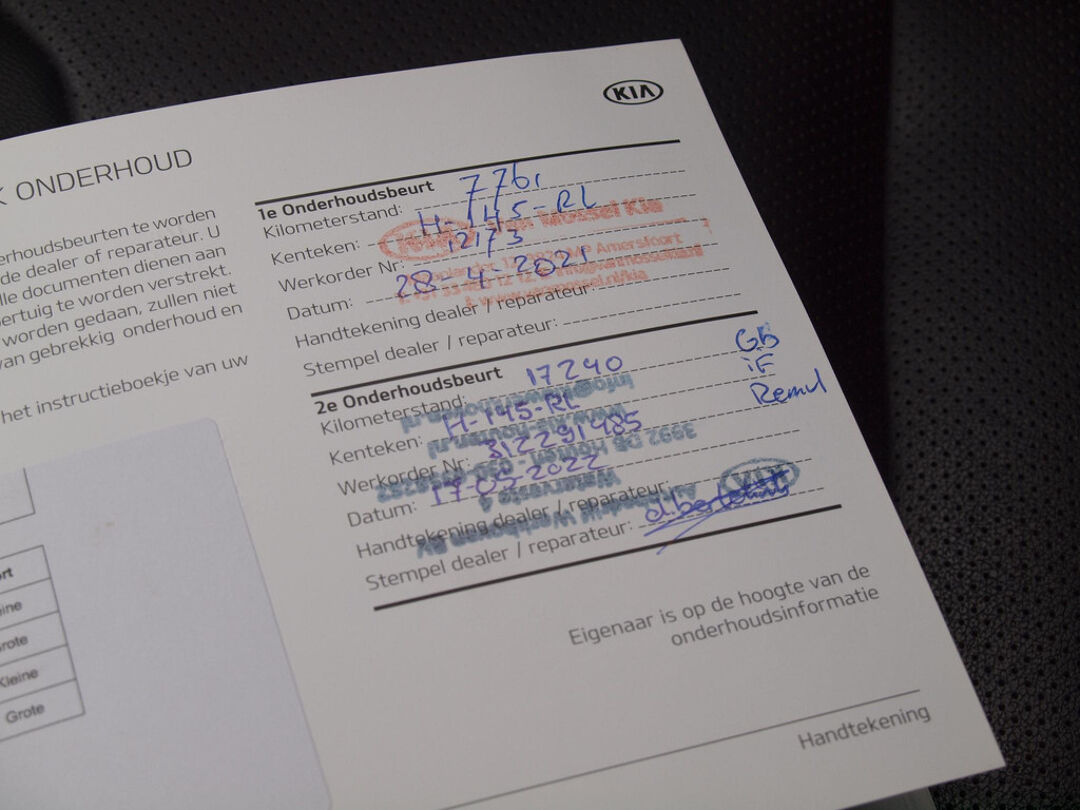 KIA
K ONDERHOUD
erhoudsbeurten te worden
de dealer of reparateur. U
lle documenten dienen aan
ertuig te worden verstrekt.
worden gedaan, zullen niet
van gebrekkig onderhoud en
het instructieboekje van uw
rt
ine
rote
Kleine
Grote
1e Onderhoudsbeurt
Kilometerstand: 7761
Kenteken: H-145-RL
Werkorder Nr: 12173
Datum: 28-4-2021
Handtekening dealer / reparateur:
Stempel dealer / reparateur:
Van Mossel Kia
Amersfoort
2e Onderhoudsbeurt
Kilometerstand: 17240
Kenteken: H-145-RL
Werkorder Nr: 312291485
Datum: 17 05 2022
Handtekening dealer / reparateur:
Stempel dealer / reparateur:
KIA
3992 DB Houten
Eigenaar is op de hoogte van de
onderhoudsinformatie
Handtekening